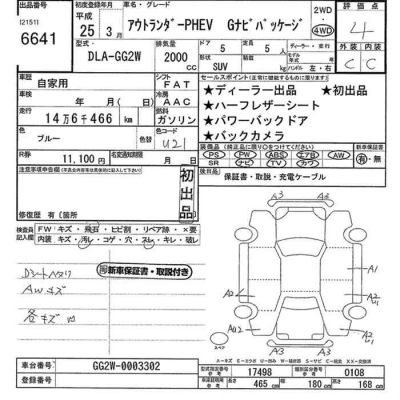 出品番号
(2151)
6641
初度登録年月
平成
25年 3月
車名・グレード
アウトランダ-PHEV Gナビパッケージ
2WD
4WD
評価点
4
型式
DLA-GG2W
排気量
2000 cc
ドア
5
形状
SUV
定員
5人
ディーラー・並行
ハンドル 左・右
外装
内装
C
C
車歴
自家用
車検
年 月(年 月)
走行
14万6千466 km
色
ブルー
色替
シフト
FAT
冷房
AAC
燃料
ガソリン
色コード
U21
R券
11,100円
名変期限
月 日
セールスポイント
★ディーラー出品 ★初出品
★ハーフレザーシート
★パワーバックドア
★バックカメラ
装備
PS PW ABS エアB AW
SR ナビ TV カワ
新車保証書
有・無
保証書・取説・充電ケーブル
注意事項申告欄
初出品
修復歴 有( )箇所
検査員
FW・キズ・飛石・ヒビ割・リペア跡・×要
内装・キズ・汚レ・コゲ・穴・スレ・キレ・破レ
Dシートハズリ
AWキズ
各キズ凹
新車保証書・取説付き
A3
A3
A1
A2
A2
U1
AU2
A2
U1
A3
A3
スペア
車台番号
GG2W-0003302
登録番号
型式指定番号
17498
類別区分番号
0108
長さ
465 cm
幅
180 cm
高さ
168 cm